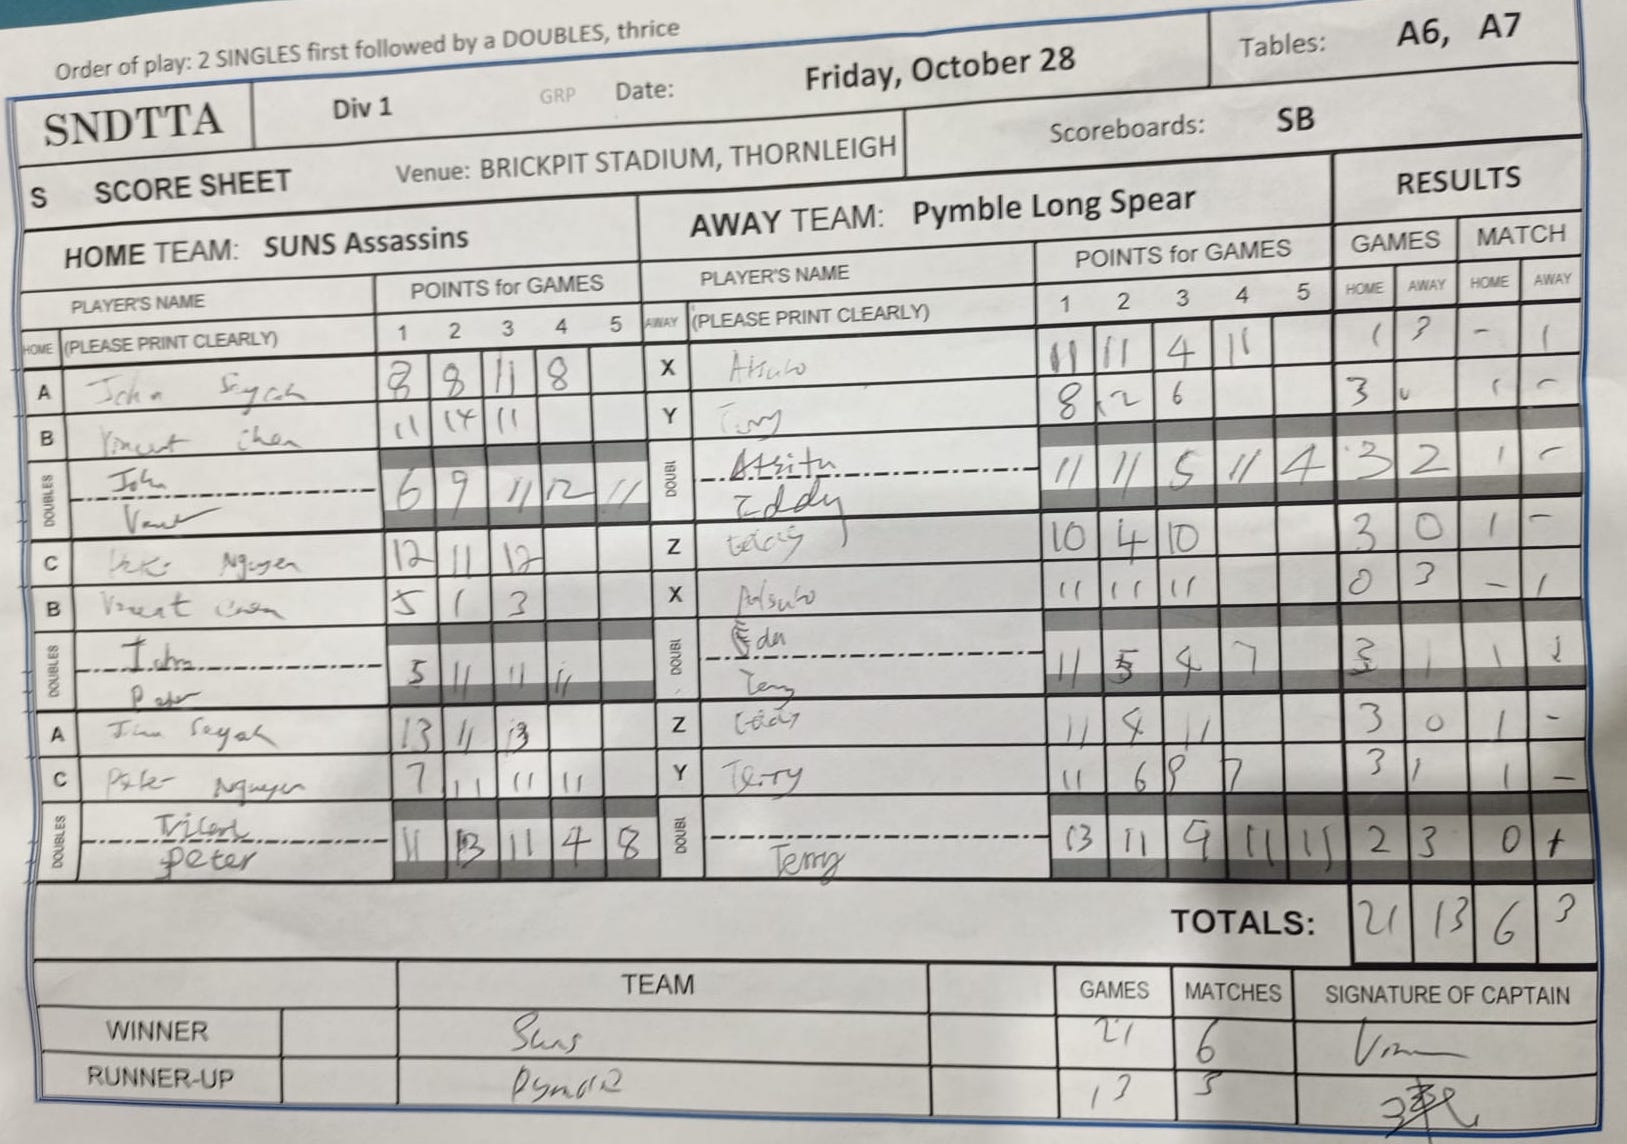 Order of play: 2 SINGLES first followed by a DOUBLES, thrice
SNDTTA Div 1 GRP Date: Friday, October 28 Tables: A6, A7
S SCORE SHEET Venue: BRICKPIT STADIUM, THORNLEIGH Scoreboards: SB
HOME TEAM: SUNS Assassins AWAY TEAM: Pymble Long Spear RESULTS
PLAYER'S NAME POINTS for GAMES PLAYER'S NAME POINTS for GAMES GAMES MATCH
HOME (PLEASE PRINT CLEARLY) 1 2 3 4 5 AWAY (PLEASE PRINT CLEARLY) 1 2 3 4 5 HOME AWAY HOME AWAY
A John 8 8 11 8 X 11 11 4 11 1 3 - 1
B Vincent Chen 11 14 11 Y 8 12 6 3 0 1 -
DOUBLES John 6 9 11 12 11 DOUBL 11 11 5 11 4 3 2 1 -
Eddy
C Nguyen 12 11 12 Z 10 4 10 3 0 1 -
B Vincent Chen 5 1 3 X 11 11 11 0 3 - 1
DOUBLES John 5 11 11 11 DOUBL 11 5 4 7 3 1 1
Peter Terry
A 13 11 13 Z 11 4 11 3 0 1 -
C Peter Nguyen 7 11 11 11 Y Terry 11 6 9 7 3 1 1 -
DOUBLES 11 13 11 4 8 DOUBL 13 11 9 11 11 2 3 0
Peter Terry
TOTALS: 21 13 6 3
TEAM GAMES MATCHES SIGNATURE OF CAPTAIN
WINNER Suns 21 6
RUNNER-UP 13 3